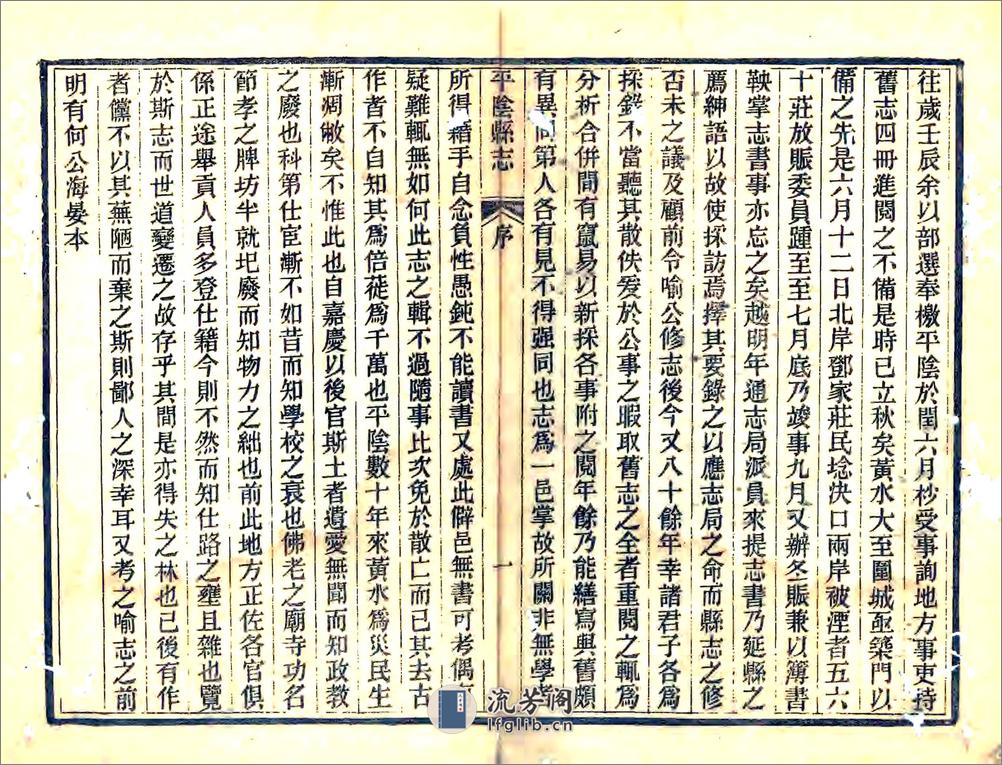 往歲壬辰余以部選奉檄平陰於閏六月杪受事詢地方事吏持
舊志四冊進閱之不備是時已立秋矣黃水大至圍城亟築門以
備之先是六月十二日北岸鄧家莊民埝決口兩岸被湮者五六
十莊放賑委員踵至至七月底乃竣事九月又辦冬賑兼以簿書
鞅掌志書事亦忘之矣越明年通志局派員來提志書乃延縣之
薦紳語以故使採訪焉擇其要錄之以應志局之命而縣志之修
否未之議及顧前令喻公修志後今又八十餘年幸諸君子各爲
採錄不當聽其散佚爰於公事之暇取舊志之全者重閱之輒爲
分析合併間有竄易以新採各事附之閱年餘乃能繕寫與舊頗
有異同第人各有見不得强同也志爲一邑掌故所關非無學者
平陰縣志
序
一
所得藉手自念負性愚鈍不能讀書又處此僻邑無書可考偶
疑難輒無如何此志之輯不過隨事比次免於散亡而已其去古
作者不自知其爲倍蓰爲千萬也平陰數十年來黃水爲災民生
漸凋敝矣不惟此也自嘉慶以後官斯土者遺愛無聞而知政教
之廢也科第仕宦漸不如昔而知學校之衰也佛老之廟寺功名
節孝之牌坊半就圮廢而知物力之絀也前此地方正佐各官俱
係正途舉貢人員多登仕籍今則不然而知仕路之壅且雜也覽
於斯志而世道變遷之故存乎其間是亦得失之林也已後有作
者儻不以其蕪陋而棄之斯則鄙人之深幸耳又考之喻志之前
明有何公海晏本
流芳閣
lfglib.cn